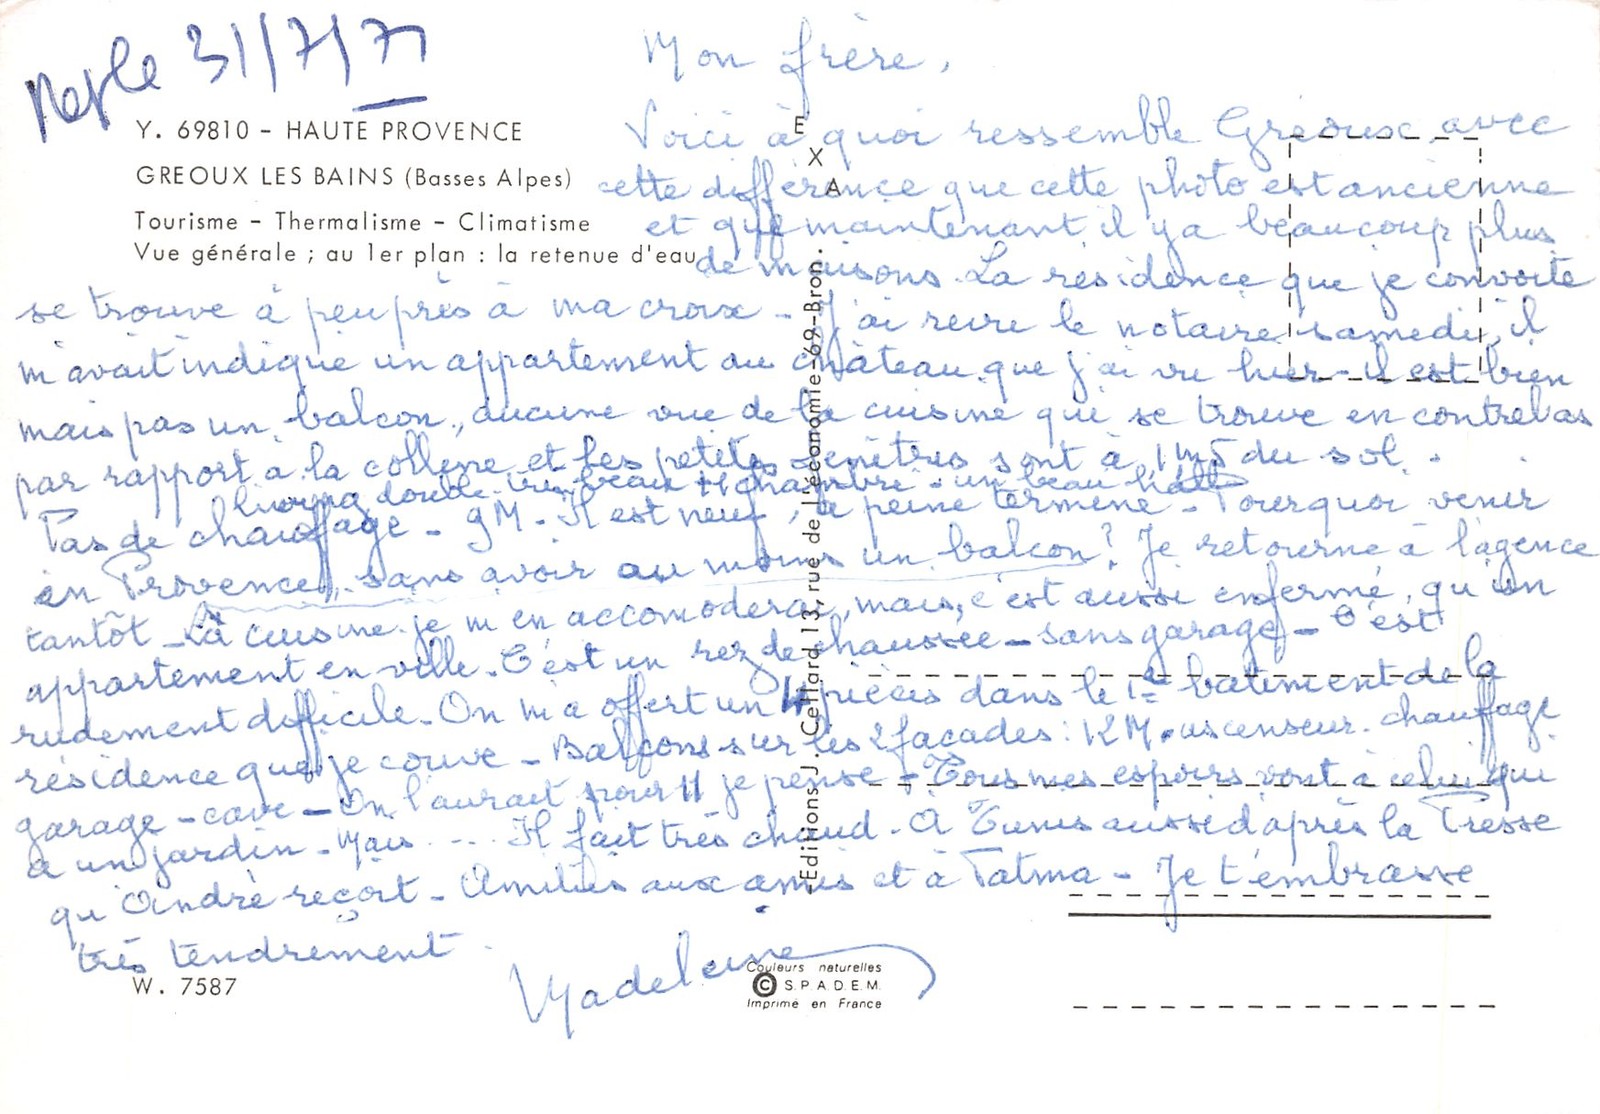 31/7/71
Y. 69810 - HAUTE PROVENCE
GREOUX LES BAINS (Basses Alpes)
Tourisme - Thermalisme - Climatisme
Vue générale ; au 1er plan : la retenue d'eau
Mon frère,
Voici à quoi ressemble Gréoux avec
cette différence que cette photo est ancienne
et que maintenant il y a beaucoup plus
de maisons. La résidence que je convoite
se trouve à peu près à ma croix - J'ai revu le notaire samedi, il
m'avait indiqué un appartement au château que j'ai vu hier - il est bien
mais pas un balcon, aucune vue de la cuisine qui se trouve en contrebas
par rapport à la colline et les petites fenêtres sont à 1m5 du sol.
living double très beau + 1 chambre - un beau hall
Pas de chauffage - 9M. Il est neuf, à peine terminé - Pourquoi venir
en Provence, sans avoir au moins un balcon? Je retourne à l'agence
tantôt - La cuisine je m'en accomoderai, mais, c'est aussi enfermé, qu'un
appartement en ville. C'est un rez de chaussée - sans garage - C'est
rudement difficile - On m'a offert un 4 pièces dans le 1er bâtiment de la
résidence que je couve - Balcons sur les 2 façades : 12M. ascenseur. chauffage
garage - cave - On l'aurait pour 11 je pense - Tous mes espoirs vont à celui qui
a un jardin - Mais ... Il fait très chaud. A Tunis aussi d'après la Presse
qu'André reçoit - Amitiés aux amis et à Fatma - Je t'embrasse
très tendrement.
Madeleine
W. 7587
Editions J. Cellard 13, rue de l'économie-69-Bron.
A X E
Couleurs naturelles
© S.P.A.D.E.M.
Imprimé en France